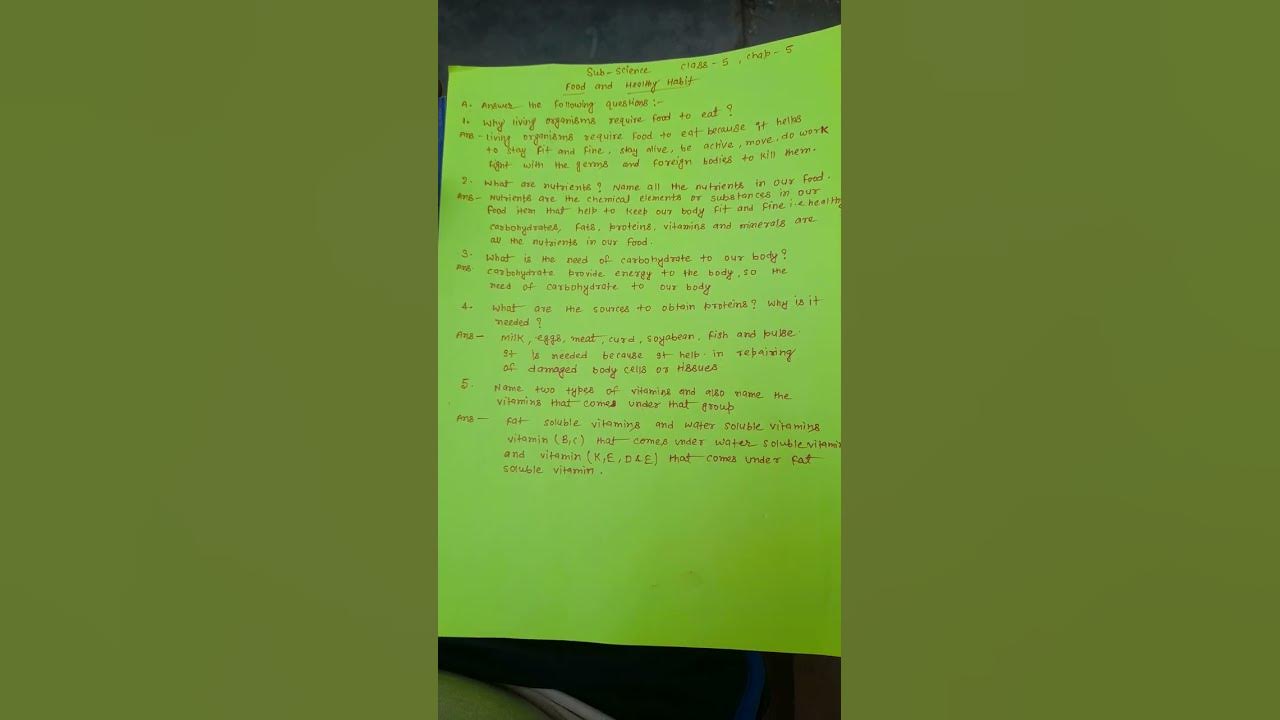 Sub-Science Class-5, Chap-5
Food and Healthy Habit
A. Answer the following questions:-
1. Why living organisms require food to eat?
Ans- Living organisms require food to eat because it helps
to stay fit and fine, stay alive, be active, move, do work
fight with the germs and foreign bodies to kill them.
2. What are nutrients? Name all the nutrients in our food.
Ans- Nutrients are the chemical elements or substances in our
food item that help to keep our body fit and fine i.e healthy
carbohydrates, fats, proteins, vitamins and minerals are
all the nutrients in our food.
3. What is the need of carbohydrate to our body?
Ans. carbohydrate provide energy to the body, so the
need of carbohydrate to our body
4. What are the sources to obtain proteins? Why is it
needed?
Ans- milk, eggs, meat, curd, soyabean, fish and pulse.
It is needed because it help in repairing
of damaged body cells or tissues
5. Name two types of vitamins and also name the
vitamins that comes under that group
Ans- Fat soluble vitamins and water soluble vitamins
vitamin (B,C) that comes under water soluble vitamin
and vitamin (K,E, D & E) that comes under fat
soluble vitamin.